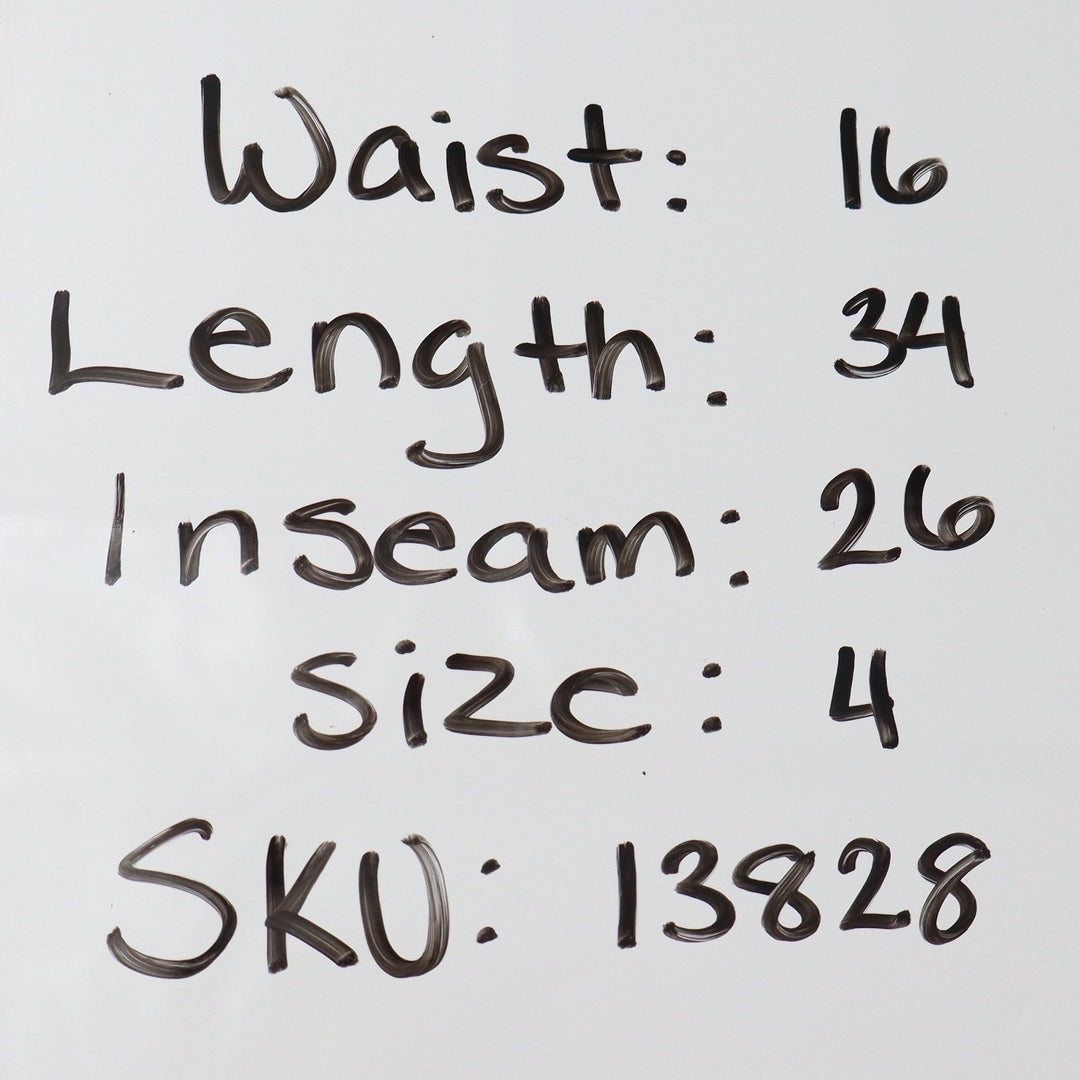 Waist: 16
Length: 34
Inseam: 26
Size: 4
SKU: 13828